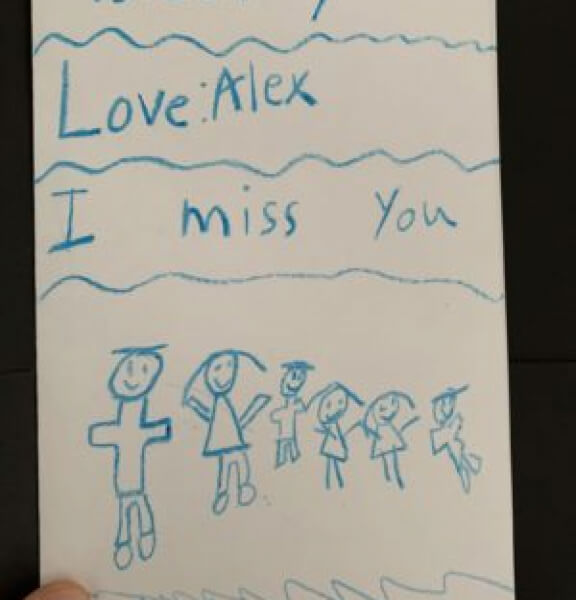 Love: Alex
I miss you